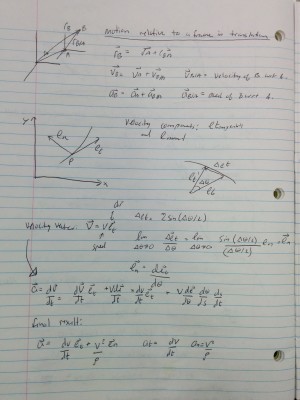 Motion relative to a frame in translation
r⃗B = r⃗A + r⃗B/A
v⃗B = v⃗A + v⃗B/A v⃗B/A = velocity of B wrt A.
a⃗B = a⃗A + a⃗B/A a⃗B/A = accel of B wrt A.
Velocity components: tangential
and normal
y
e⃗n
e⃗t
P
x
Δet
Δθ
Velocity vector: v⃗ = v e⃗t
speed
Δet = 2 sin(Δθ/2)
lim Δθ→0 Δe⃗t/Δθ = lim Δθ→0 sin(Δθ/2)/(Δθ/2) e⃗n = e⃗n
e⃗n = de⃗t/dθ
a⃗ = dv⃗/dt = dv/dt e⃗t + v de⃗t/dt = dv/dt e⃗t + v de⃗t/dθ dθ/ds ds/dt
final result:
a⃗ = dv/dt e⃗t + v²/ρ e⃗n at = dv/dt an = v²/ρ